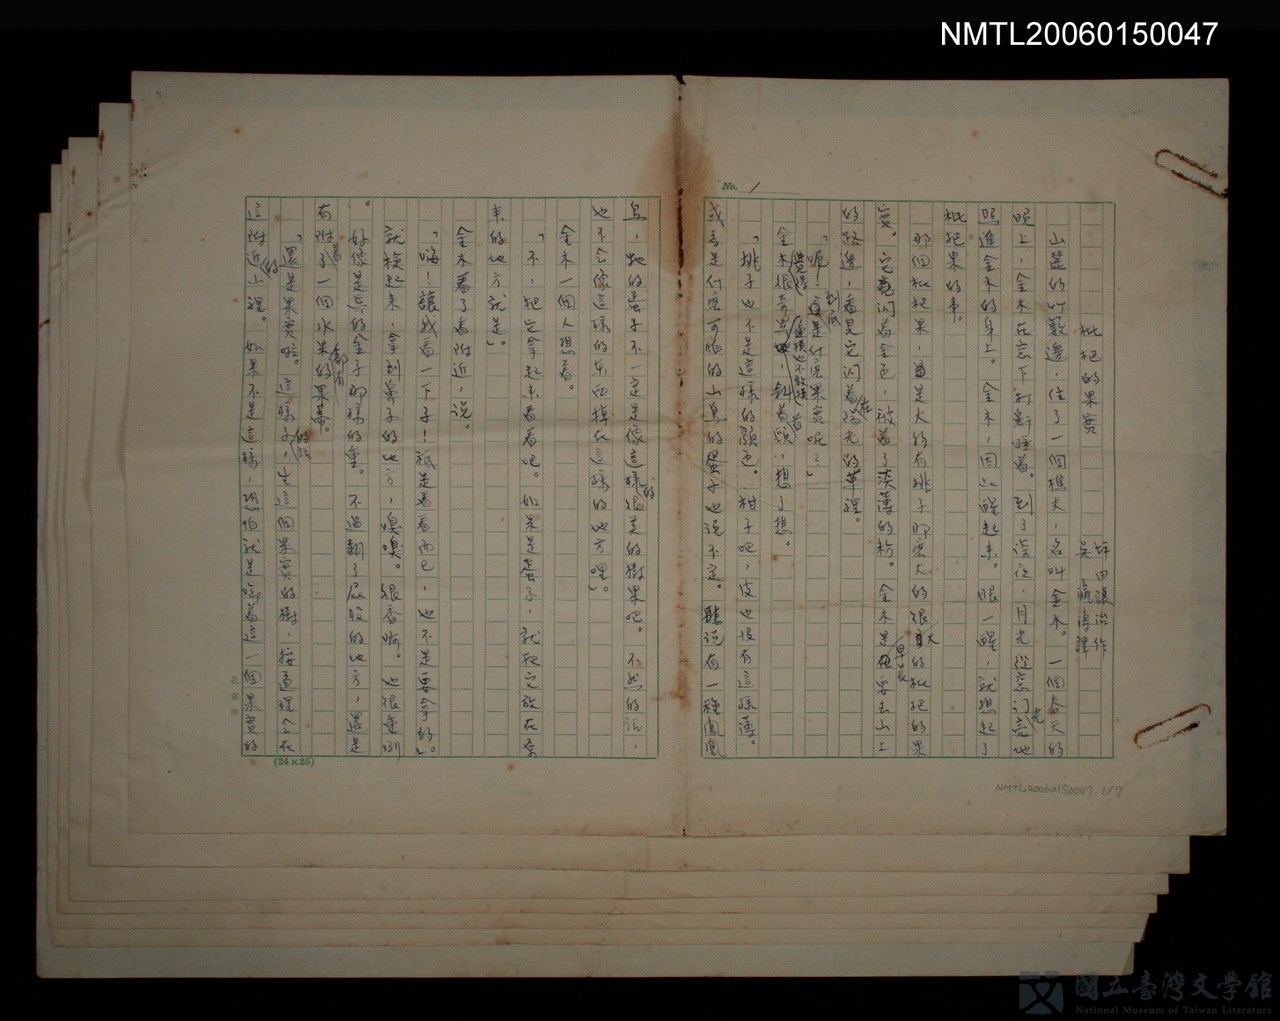 NMTL20060150047
No. 1
枇杷的果實
坪田讓治作
吳 譯
山麓的竹藪邊，住了一個樵夫，名叫金木。一個春天的
晚上，金木在窗下打鼾睡着。到了深夜，月光從窗門亮光地
照進金木的身上。金木，因此醒起來。眼一醒，就想起了
枇杷果的事。
那個枇杷果，是大的有桃子那麼大的很大的枇杷的果
實。它竟闪着金色，被着了淡薄的粉。金木是早晨要去山上
的路邊，看見它闪着在陽光的草裡。
「呃！這到底是什麼果實呢？」
金木覺得很奇 ，連摸也不敢摸，斜着頭，想了想。
「桃子也不是這樣的顏色。柑子吧，皮也没有這樣薄。
或者是什麼可怕的山鳥的蛋子也说不定。聽说有一種鳳凰
鳥，牠的蛋子不一定是像這樣很美的樹果吧。不然的話，
也不会像這樣的東西掉在這樣的地方哩」。
金木一個人想着。
「不，把它拿起来看看吧。如果是蛋子，就把它放在原
来的地方就是」。
金木看了看附近，说。
「嗨！讓我看一下子！祇是看看而已，也不是要拿的」。
就撿起来，拿到鼻子的地方，嗅嗅。很香啊。也很重咧
。好像是真的金子那樣的重。不過翻了屁股的地方，還是
有附着了一個水果都有的果蒂。
「還是果實啦。這樣子的話，生這個果實的樹，按道理会在
這附近的山裡。如果不是這樣，恐怕就是啣着這一個果實的
(24×25)
NMTL20060150047 1/7
國立臺灣文學館
National Museum of Taiwan Literature